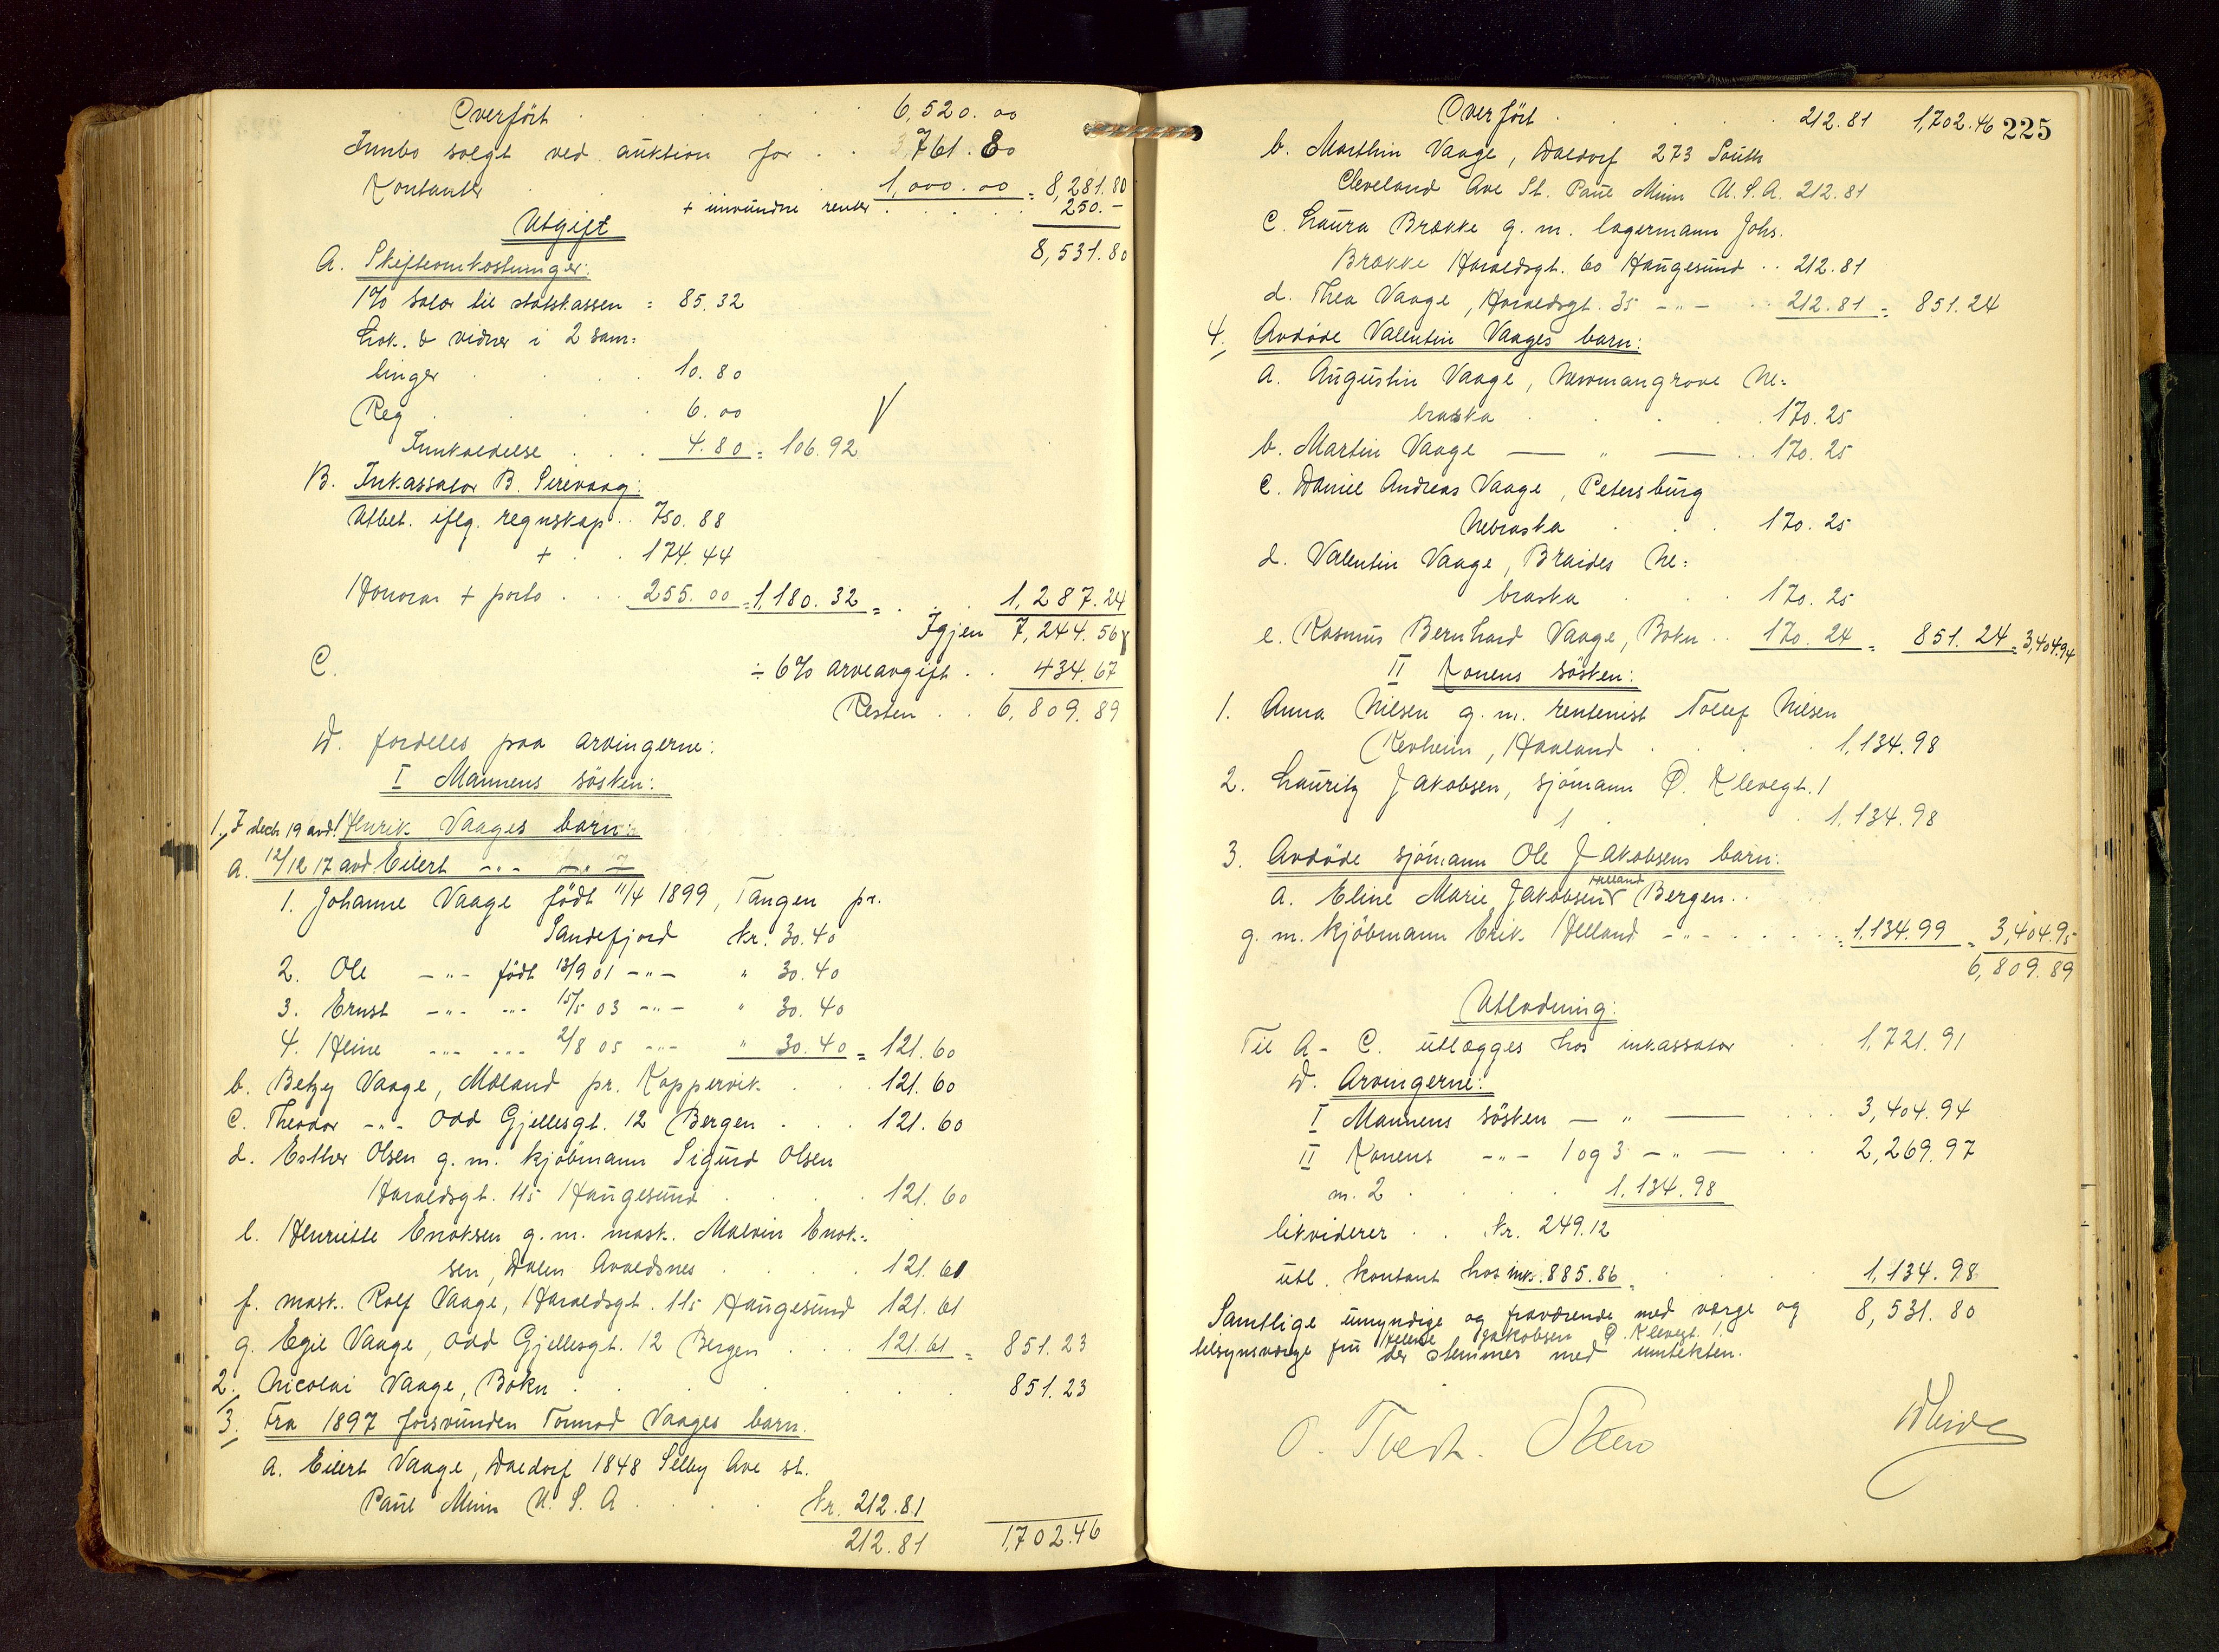 Overført . . . 6,520.00
Innbo solgt ved auktion for . . 761.80
Kontanter . . 1,000.00 = 8,281.80
+ innvundne renter . . . . 250.-
Utgift
8,531.80
A. Skifteomkostninger:
1% salær til statskassen = 85.32
Lok. & vidner i 2 sam=
linger . . . 10.80
Reg . . . . 6.00
Innkaldelse . . . 4.80 = 106.92
B. Inkassator B. Sirevaag:
Utbet. iflg. regnskap . . 750.88
+ . . 174.44
Honorar + porto . . . 255.00 = 1,180.32 = . . . 1,287.24
Igjen 7,244.56
C. ÷ 6% arveavgift . . 434.67
Resten . . 6,809.89
D. fordeles paa arvingerne:
I Mannens søsken:
1. I decb 19 avd. Henrik Vaages barn:
a. 12/12 17 avd Eilert -"- -"-
1. Johanne Vaage født 11/4 1899, Tangen pr.
Sandefjord kr. 30.40
2. Ole -"- født 13/9 01 -"- " 30.40
3. Ernst -"- -"- 15/5 03 -"- " 30.40
4. Heine -"- -"- 2/8 05 -"- " 30.40 = 121.60
b. Betzy Vaage, Mæland pr. Koppervik . . . 121.60
c. Theodor -"- Odd Gjellesgt. 12 Bergen . . . 121.60
d. Esther Olsen g. m. kjøbmann Sigurd Olsen
Haraldsgt. 115 Haugesund . . . . 121.60
e. Henriette Enoksen g. m. mask. Malvin Enok=
sen, Dalen Avaldsnes . . . . 121.61
f. mask. Rolf Vaage, Haraldsgt. 115 Haugesund 121.61
g. Egil Vaage, Odd Gjellesgt. 12 Bergen . . . 121.61 = 851.23
2. Nicolai Vaage, Bokn . . . . . . 851.23
3. Fra 1897 forsvunden Tormod Vaages barn.
a. Eilert Vaage, Waldorf 1848 Selby Ave st.
Paul Minn U. S. A . . . . kr. 212.81
212.81 1702.46
225
Overført . . . . 212.81 1,702.46
b. Marthin Vaage, Waldorf 273 South
Cleveland Ave St. Paul Minn U. S. A. 212.81
c. Laura Brække g. m. lagermann Johs.
Brække Haraldsgt. 60 Haugesund . . 212.81
d. Thea Vaage, Haraldsgt. 35 -"- . . 212.81 = 851.24
4. Avdøde Valentin Vaages barn:
a. Augustin Vaage, Newmangrove Ne=
braska . . . . . 170.25
b. Martin Vaage — " — . . 170.25
c. Daniel Andreas Vaage, Petersburg
Nebraska . . . 170.25
d. Valentin Vaage, Braides Ne=
braska . . . 170.25
e. Rasmus Bernhard Vaage, Bokn . . 170.24 = 851.24 = 3,404.94
II Konens søsken:
1. Anna Nilsen g. m. rentenist Tollef Nilsen
Revheim, Haaland . . . . 1,134.98
2. Lauritz Jakobsen, sjømann Ø. Klevegt. 1
1 . . . 1,134.98
3. Avdøde sjømann Ole Jakobsens barn:
a. Eline Marie Jakobsen Helland Bergen . .
g. m. kjøbmann Erik Helland -"- . . . . 1,134.99 = 3,404.95
6,809.89
Utlodning:
Til A - C. utlægges hos inkassator . . 1,721.91
D. Arvingerne:
I Mannens søsken — " — . . . 3,404.94
II Konens -"- 1 og 3 — " — . . 2,269.97
m. 2 . . . . 1,134.98
likviderer . . kr. 249.12
utl. kontant hos ink. 885.86 = . . . . 1,134.98
Samtlige umyndige og fraværende med værge og 8,531.80
tilsynsværge fru Helene Jakobsen Ø. Klevegt. 1.
der stemmer med inntekten.